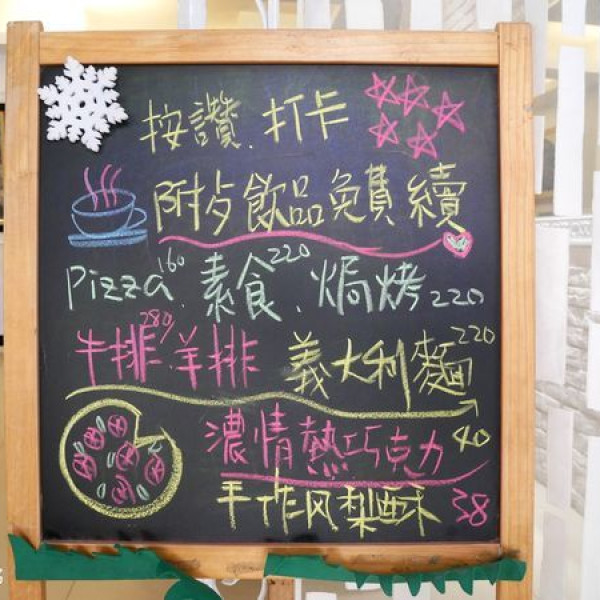 按讚.打卡
附步飲品免費續
Pizza 160、素食 220、焗烤 220
牛排 280/羊排 義大利麵 220
濃情熱巧克力 40
手作风梨酥 38